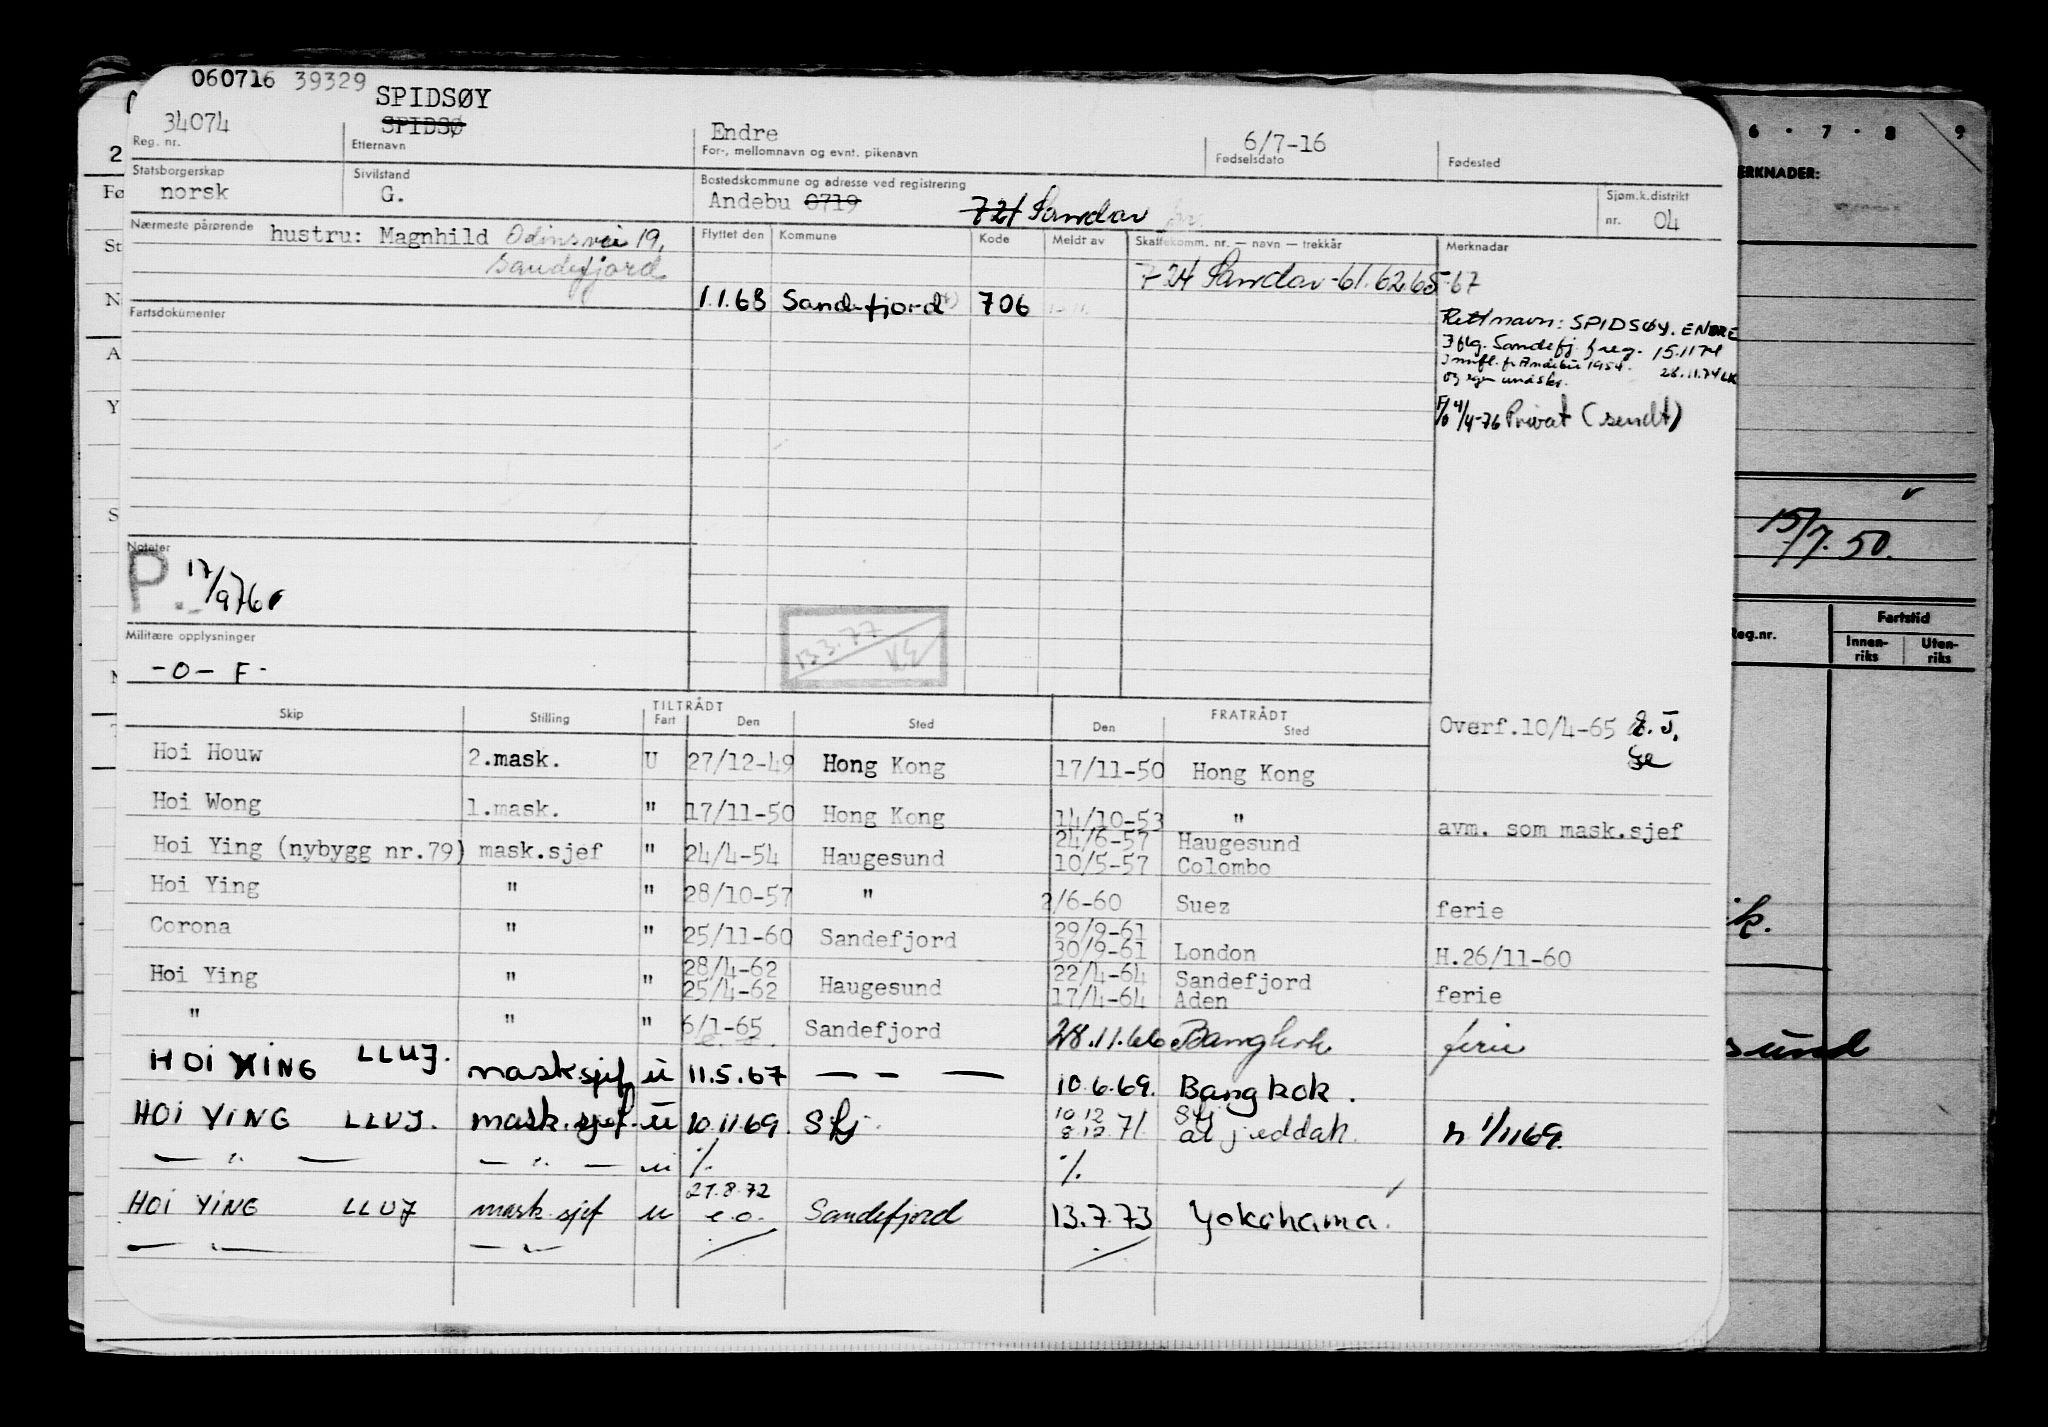 060716 39329
SPIDSØY
34074 SPIDSØ Endre 6/7-16
Reg. nr. Etternavn For-, mellomnavn og evnt. pikenavn Fødselsdato Fødested
Statsborgerskap Sivilstand Bostedskommune og adresse ved registrering Sjøm.k.distrikt
norsk G. Andebu 0719 721 Sandar nr. 04
Nærmeste pårørende hustru: Magnhild Odinsvei 19, Flyttet den Kommune Kode Meldt av Skattekomm. nr. — navn — trekkår Merknader
Sandefjord 724 Sandar -61.62.65-67
1.1.68 Sandefjord 706
Fartsdokumenter
Rett navn: SPIDSØY. ENDRE
Iflg. Sandefj. f.reg. 15.11 74
Innfl. fr Andebu 1954. 28.11.74 LK
og egen undskr.
4/4-76 Privat (sendt)
Notater
P. 17/9 76
13.3.77
Militære opplysninger
-0- F-
TILTRÅDT FRATRÅDT
Skip Stilling Fart Den Sted Den Sted Overf.10/4-65
Hoi Houw 2.mask. U 27/12-49 Hong Kong 17/11-50 Hong Kong
Hoi Wong 1.mask. " 17/11-50 Hong Kong 14/10-53 " avm. som mask.sjef
24/6-57 Haugesund
Hoi Ying (nybygg nr.79) mask.sjef " 24/4-54 Haugesund 10/5-57 Colombo
Hoi Ying " " 28/10-57 " 2/6-60 Suez ferie
29/9-61
Corona " " 25/11-60 Sandefjord 30/9-61 London H.26/11-60
28/4-62 22/4-64 Sandefjord
Hoi Ying " " 25/4-62 Haugesund 17/4-64 Aden ferie
" " " 6/1-65 Sandefjord 28.11.66 Bangkok ferie
e. o.
HOI YING LLUJ. masksjef u 11.5.67 — — — 10.6.69. Bangkok.
10 12 Sfj
HOI YING LLUJ. mask.sjef. u 10.11 69. Sfj. 8.12.71. at jeddah. h 1/11 69.
— " — — " — u % %
27.8.72
HOI YING LLUJ mask.sjef u e.o. Sandefjord 13.7.73 Yokohama.
— " — — " — % %
6 · 7 · 8 9
ERKNADER:
15/7. 50.
Reg.nr. Fartstid
Innen-riks Uten-riks
ik.
sund
2
Fø
St
N
A
Y
S